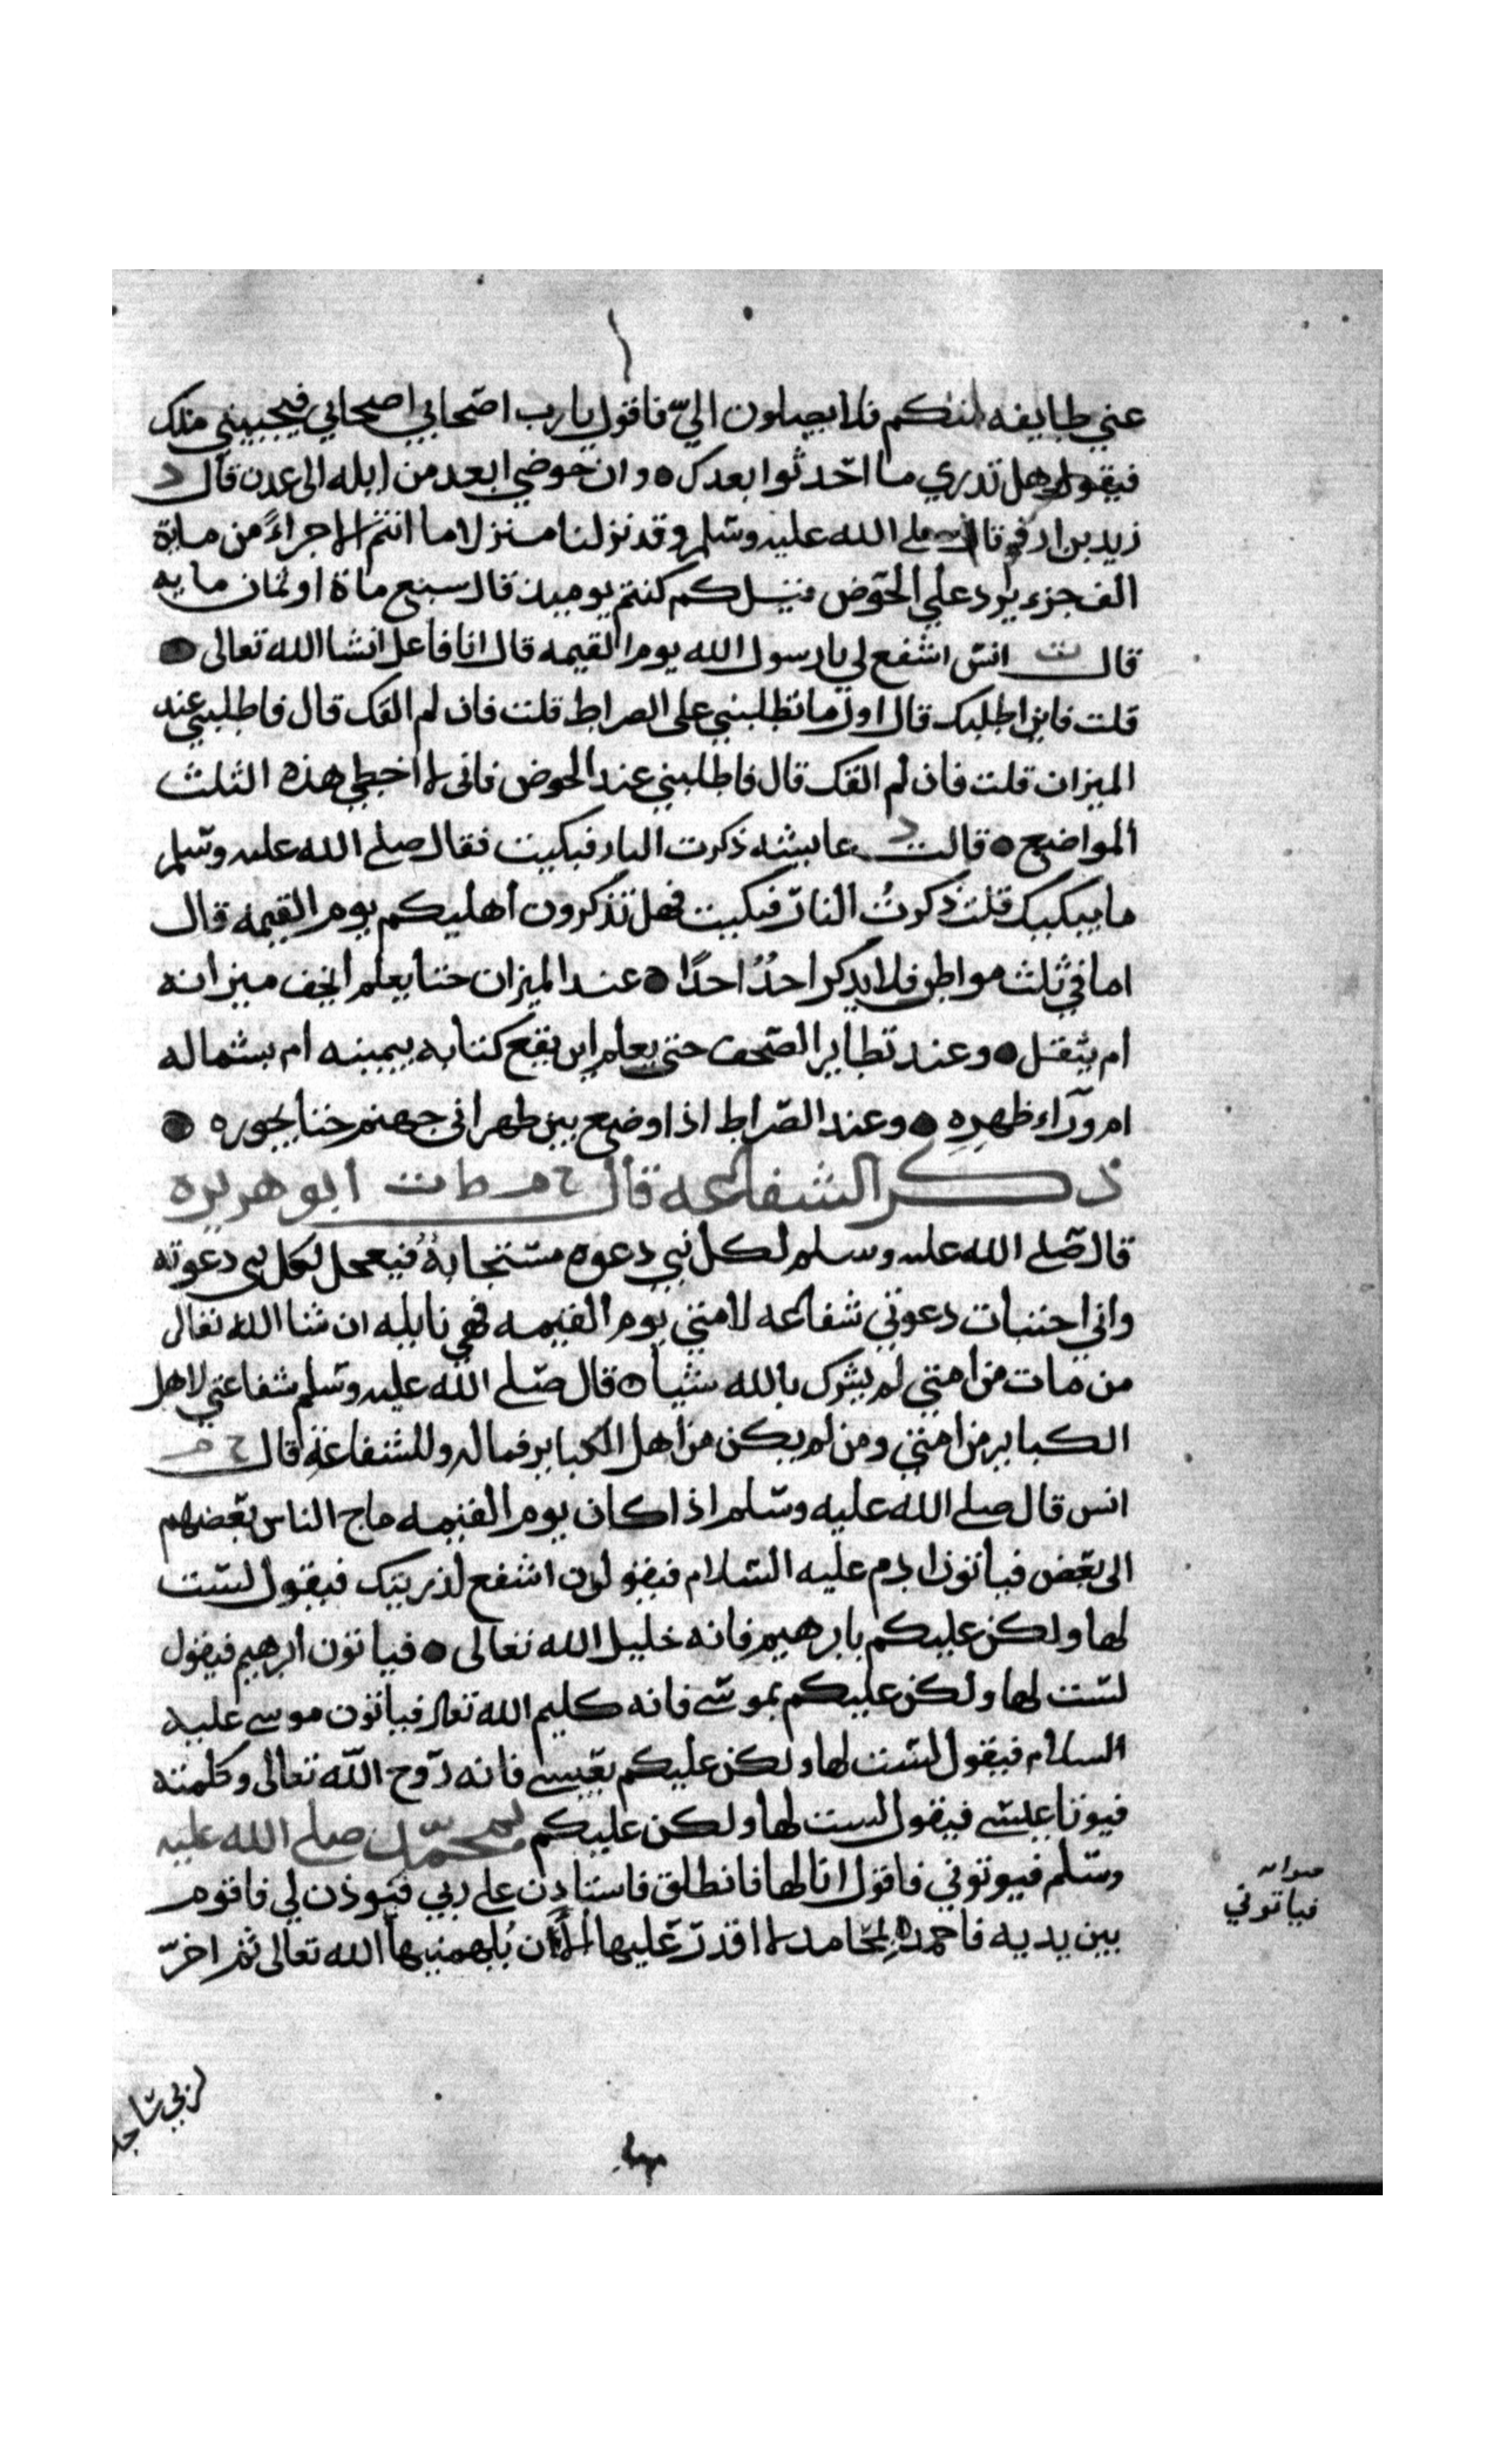 عني طايفه منكم فلا يصلون اليّ فاقول يا رب اصحابي اصحابي فيجيبني ملك
فيقول وهل تدري ما احدثوا بعدك ● وان حوضي ابعد من ايله الى عدن قال د
زيد بن ارقم قال صلى الله عليه وسلم وقد نزلنا منزلا ما انتم الا جزاءً من ماية
الف جزء يرد علي الحوض فيسل كم كنتم يوميذ قال سبع ماة او ثمان مايه
قال ت انس اشفع لي يا رسول الله يوم القيمه قال انا فاعل انشا الله تعالى ●
قلت فاين اطلبك قال اول ما تطلبني على الصراط قلت فان لم القك قال فاطلبني عند
الميزان قلت فان لم القك قال فاطلبني عند الحوض فانى لا اخطي هذه الثلث
المواضع ● قالت د عايشه ذكرت النار فبكيت فقال صلى الله عليه وسلم
ما يبكيك قلت ذكرتُ النار فبكيت فهل تذكرون اهليكم يوم القيمه قال
اما في ثلث مواطن فلا يذكر احدُ احدًا ● عند الميزان حتا يعلم ايخف ميزانه
ام يثقل ● وعند تطاير الصحف حتى يعلم اين يقع كتابه بيمينه ام بشماله
ام ورآء ظهرِهِ ● وعند الصراط اذا وضع بين ظهرانى جهنم حتا يجوره ●
ذكر الشفاعه قال خ م ط ت ابو هريره
قال صلى الله عليه وسلم لكل نبي دعوه مستجابةُ فيعجل لكل نبى دعوته
واني اختبات دعوتي شفاعه لامتي يوم القيمه فهي نايله ان شا الله تعالى
من مات من امتي لم يشرك بالله شيا ● قال صلى الله عليه وسلم شفاعتي لاهل
الكباير من امتي ومن لم يكن من اهل الكباير فماله وللشفاعة قال خ م
انس قال صلى الله عليه وسلم اذا كان يوم القيمه ماج الناس بعضهم
الى بعض فياتون ادم عليه السلام فيقولون اشفع لذريتك فيقول لست
لها ولكن عليكم بابرهيم فانه خليل الله تعالى ● فياتون ابرهيم فيقول
لست لها ولكن عليكم بموسى فانه كليم الله تعالى فياتون موسى عليه
السلام فيقول لست لها ولكن عليكم بعيسى فانه روح الله تعالى وكلمته
فيوتا عيسى فيقول لست لها ولكن عليكم بمحمد صلى الله عليه
وسلم فيوتوني فاقول انا لها فانطلق فاستاذن على ربي فيوذن لي فاقوم
صوابه
فياتوني
بين يديه فاحمده بمحامد لا اقدر عليها الا ان يُلهمنيها الله تعالى ثم اخرّ
لربي ساجد